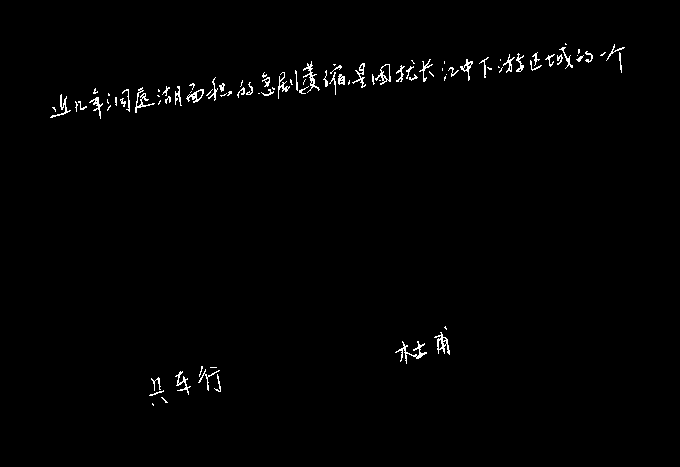 近几年洞庭湖面积的急剧萎缩是困扰长江中下游区域的一个
杜甫
兵车行